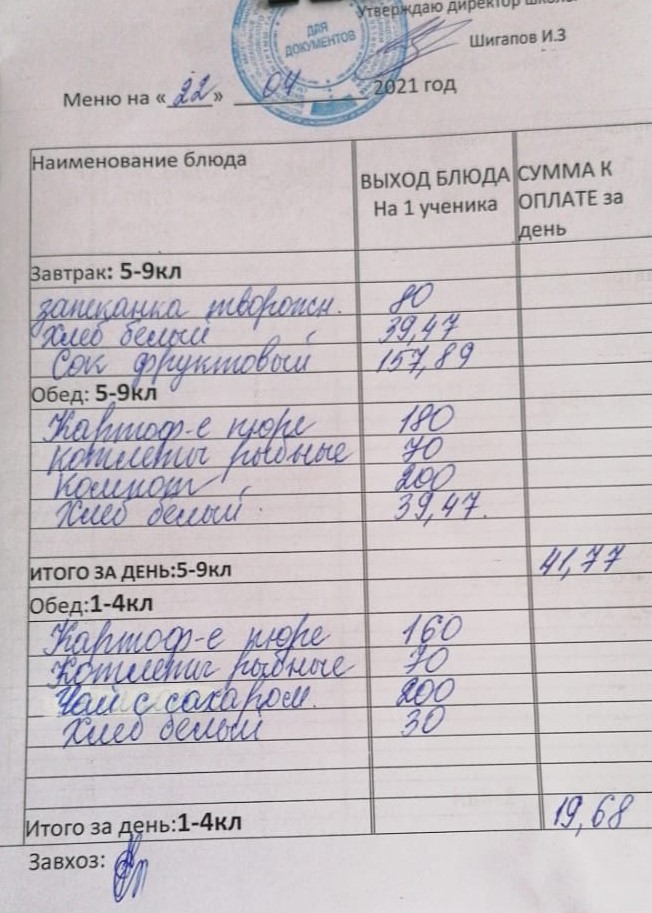 Утверждаю директор школы
ДЛЯ
ДОКУМЕНТОВ
Шигапов И.З
Меню на «22» 04 2021 год
Наименование блюда
ВЫХОД БЛЮДА
На 1 ученика
СУММА К
ОПЛАТЕ за
день
Завтрак: 5-9кл
запеканка творожн. 80
Хлеб белый 39,47
Сок фруктовый 157,89
Обед: 5-9кл
Картоф-е пюре 180
котлеты рыбные 70
Компот 200
Хлеб белый 39,47
ИТОГО ЗА ДЕНЬ:5-9кл 41,77
Обед:1-4кл
Картоф-е пюре 160
Котлеты рыбные 70
Чай с сахаром. 200
Хлеб белый 30
Итого за день:1-4кл 19,68
Завхоз: